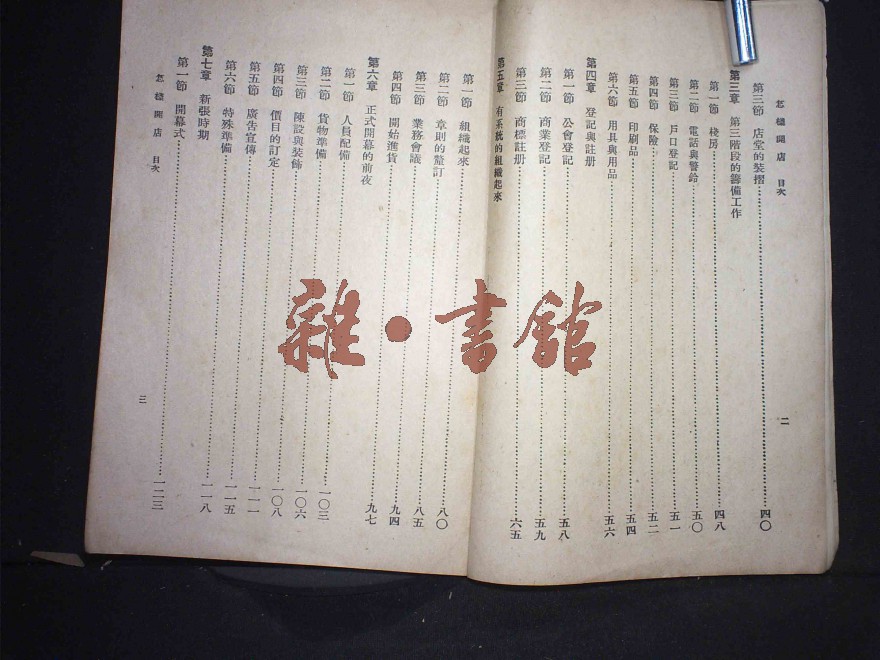 怎樣開店 目次
二
第三節 店堂的裝摺 四〇
第三章 第三階段的籌備工作
第一節 棧房 四八
第二節 電話與警鈴 五〇
第三節 戶口登記 五一
第四節 保險 五二
第五節 印刷品 五四
第六節 用具與用品 五六
第四章 登記與註册
第一節 公會登記 五八
第二節 商業登記 五九
第三節 商標註册 六五
第五章 有系統的組織起來
第一節 組織起來
第二節 章則的釐訂 八〇
第三節 業務會議 八五
第四節 開始進貨 九四
第六章 正式開幕的前夜 九七
第一節 人員配備
第二節 貨物準備 一〇三
第三節 陳設與裝飾 一〇六
第四節 價目的訂定 一〇八
第五節 廣告宣傳 一一一
第六節 特殊準備 一一五
第七章 新張時期 一一八
第一節 開幕式 一二三
怎樣開店 目次
三
雜·書館